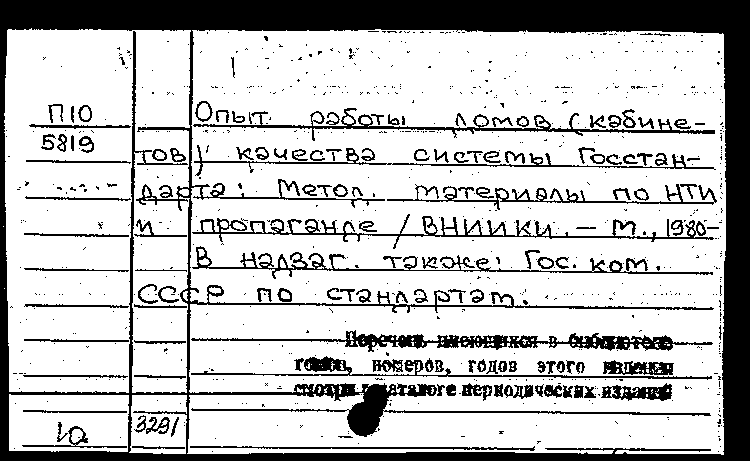 П10
5819
Опыт работы домов (кабине-
тов) качества системы Госстан-
дарта: Метод. материалы по НТИ
и пропаганде / ВНИИКИ. - М., 1980-
В надзаг. также: Гос. ком.
СССР по стандартам.
Перечень имеющихся в библиотеке
томов, номеров, годов этого издания
смотри в каталоге периодических изданий
3291